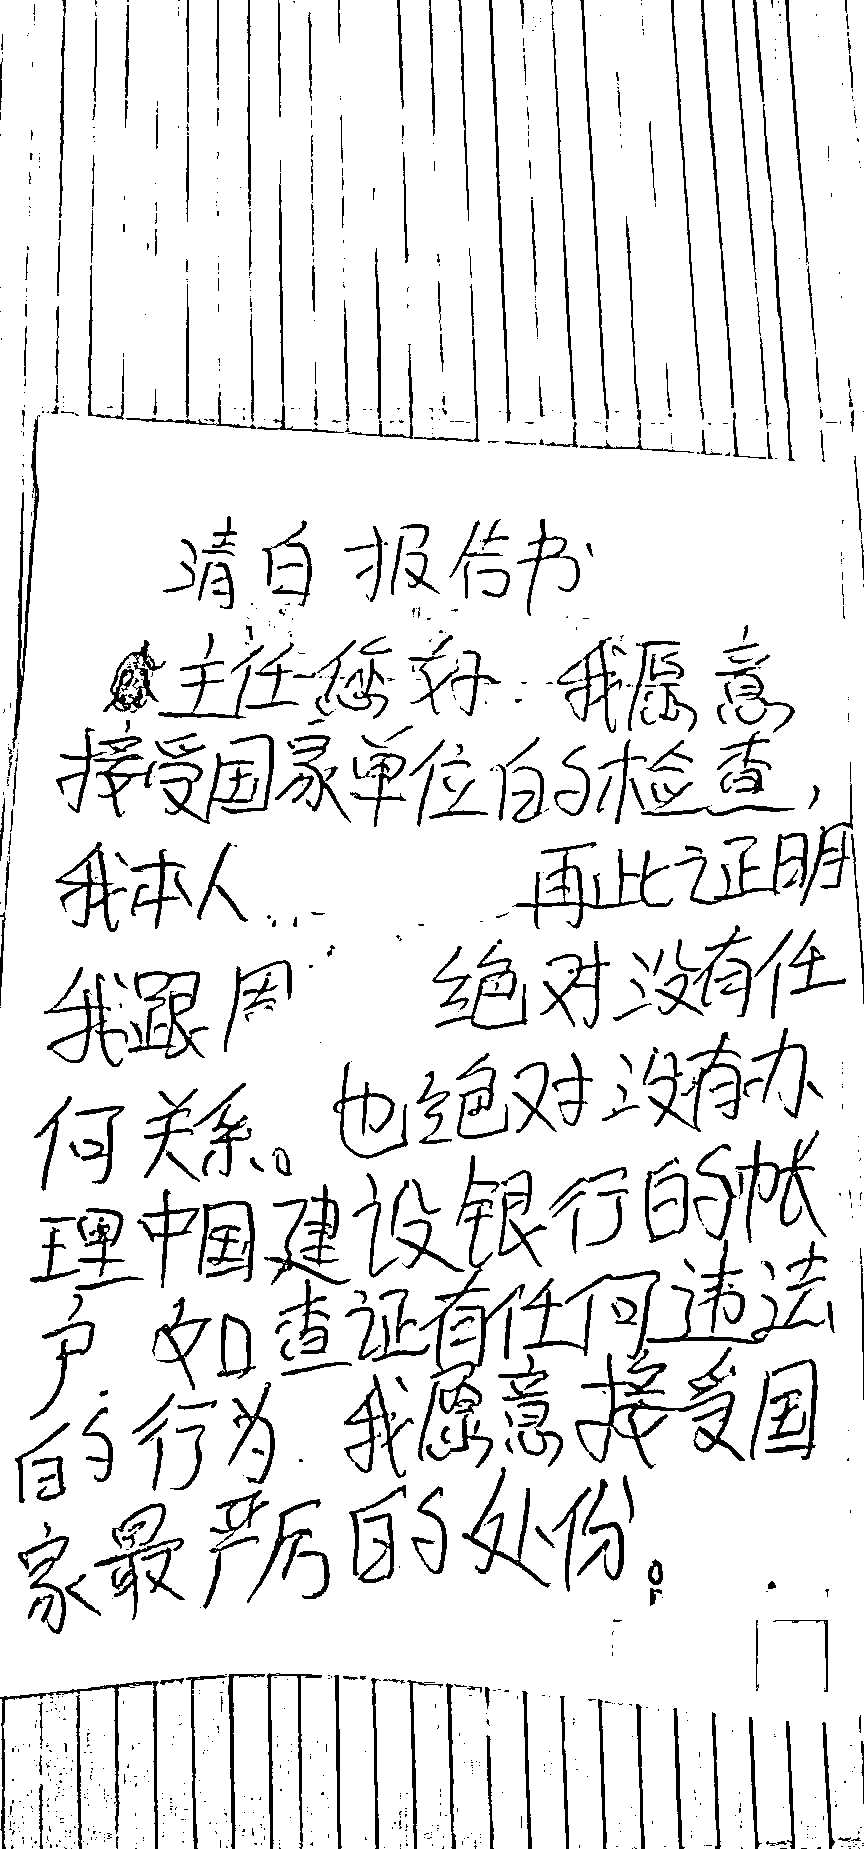 清白报告书
主任您好 我愿意
接受国家单位的检查，
我本人 再此证明
我跟周 绝对没有任
何关系。也绝对没有办
理中国建设银行的帐
户 如查证有任何违法
的行为 我愿意接受国
家最严厉的处份。